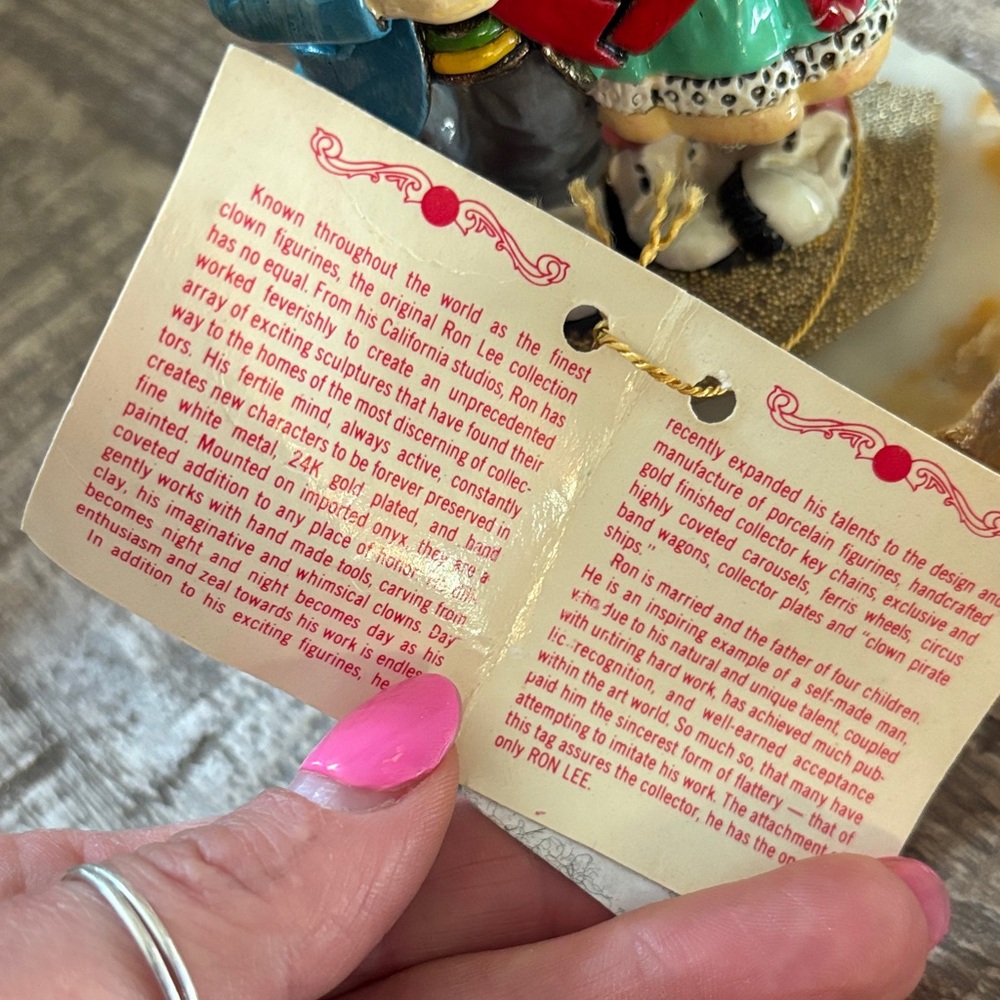 Known throughout the world as the finest
clown figurines, the original Ron Lee collection
has no equal. From his California studios, Ron has
worked feverishly to create an unprecedented
array of exciting sculptures that have found their
way to the homes of the most discerning of collec-
tors. His fertile mind, always active, constantly
creates new characters to be forever preserved in
fine white metal, 24K gold plated, and hand
painted. Mounted on imported onyx, they are a
coveted addition to any place of honor.
gently works with hand made tools, carving from
clay, his imaginative and whimsical clowns. Day
becomes night and night becomes day as his
enthusiasm and zeal towards his work is endless
In addition to his exciting figurines, he
recently expanded his talents to the design and
manufacture of porcelain figurines, handcrafted
gold finished collector key chains, exclusive and
highly coveted carousels, ferris wheels, circus
band wagons, collector plates and "clown pirate
ships."
Ron is married and the father of four children.
He is an inspiring example of a self-made man,
who due to his natural and unique talent, coupled
with untiring hard work, has achieved much pub-
lic recognition, and well-earned acceptance
within the art world. So much so, that many have
paid him the sincerest form of flattery — that of
attempting to imitate his work. The attachment
this tag assures the collector, he has the
only RON LEE.